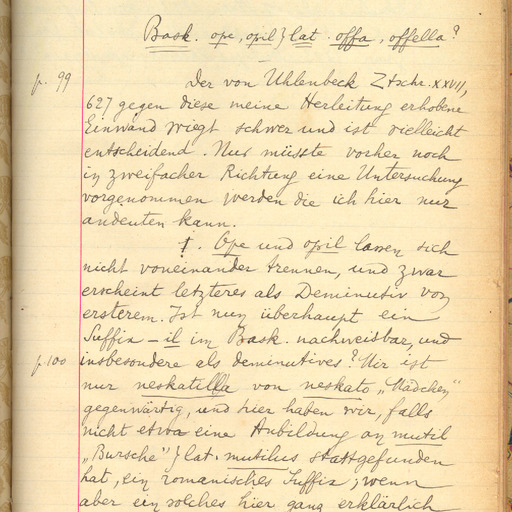 Bask. ope, opil } lat. offa, offella?
p. 99
Der von Uhlenbeck Ztschr. XXVII,
627 gegen diese meine Herleitung erhobene
Einwand wiegt schwer und ist vielleicht
entscheidend. Nur müsste vorher noch
in zweifacher Richtung eine Untersuchung
vorgenommen werden die ich hier nur
andeuten kann.
1. Ope und opil lassen sich
nicht voneinander trennen, und zwar
erscheint letzteres als Deminutiv von
ersterem. Ist nun überhaupt ein
Suffix -il im Bask. nachweisbar, und
p. 100
insbesondere als deminutives? Mir ist
nur neskatilla von neskato „Mädchen"
gegenwärtig, und hier haben wir, falls
nicht etwa eine Anbildung an mutil
„Bursche" } lat. mutilus stattgefunden
hat, ein romanisches Suffix; wenn
aber ein solches hier ganz erklärlich